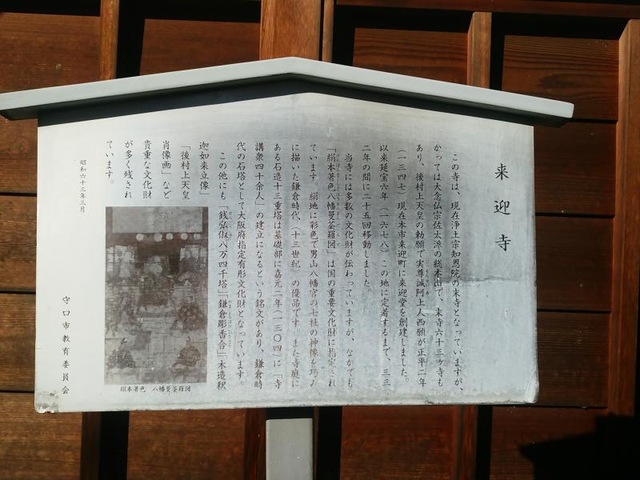 来迎寺
この寺は、現在浄土宗知恩院の末寺となっていますが、
かつては大念仏宗佐太派の総本山で、末寺六十三ヶ寺も
あり、後村上天皇の勅願で実尊誠阿上人西願が正平二年
(一三四七)現在本市来迎町に来迎堂を創建しました。
以来延宝六年(一六七八)この地に定着するまで、三三
二年の間に二十五回移動しました。
当寺には多数の文化財が伝わっていますが、なかでも
「絹本著色八幡曼荼羅図」は国の重要文化財に指定され
ています。絹地に彩色で男山八幡宮の七社の神像を巧み
に描いた鎌倉時代(十三世紀)の優品です。また寺庭に
ある石造十三重塔は基礎部に嘉元二年(一三〇四)に「寺
講衆四十余人」の建立になるという銘文があり、鎌倉時
代の石塔として大阪府指定有形文化財となっています。
この他にも「銭弘俶八万四千塔」「鎌倉彫香合」「木造釈
迦如来立像」
「後村上天皇
肖像画」など
貴重な文化財
が多く残され
ています。
昭和六十三年三月
守口市教育委員会
絹本著色 八幡曼荼羅図